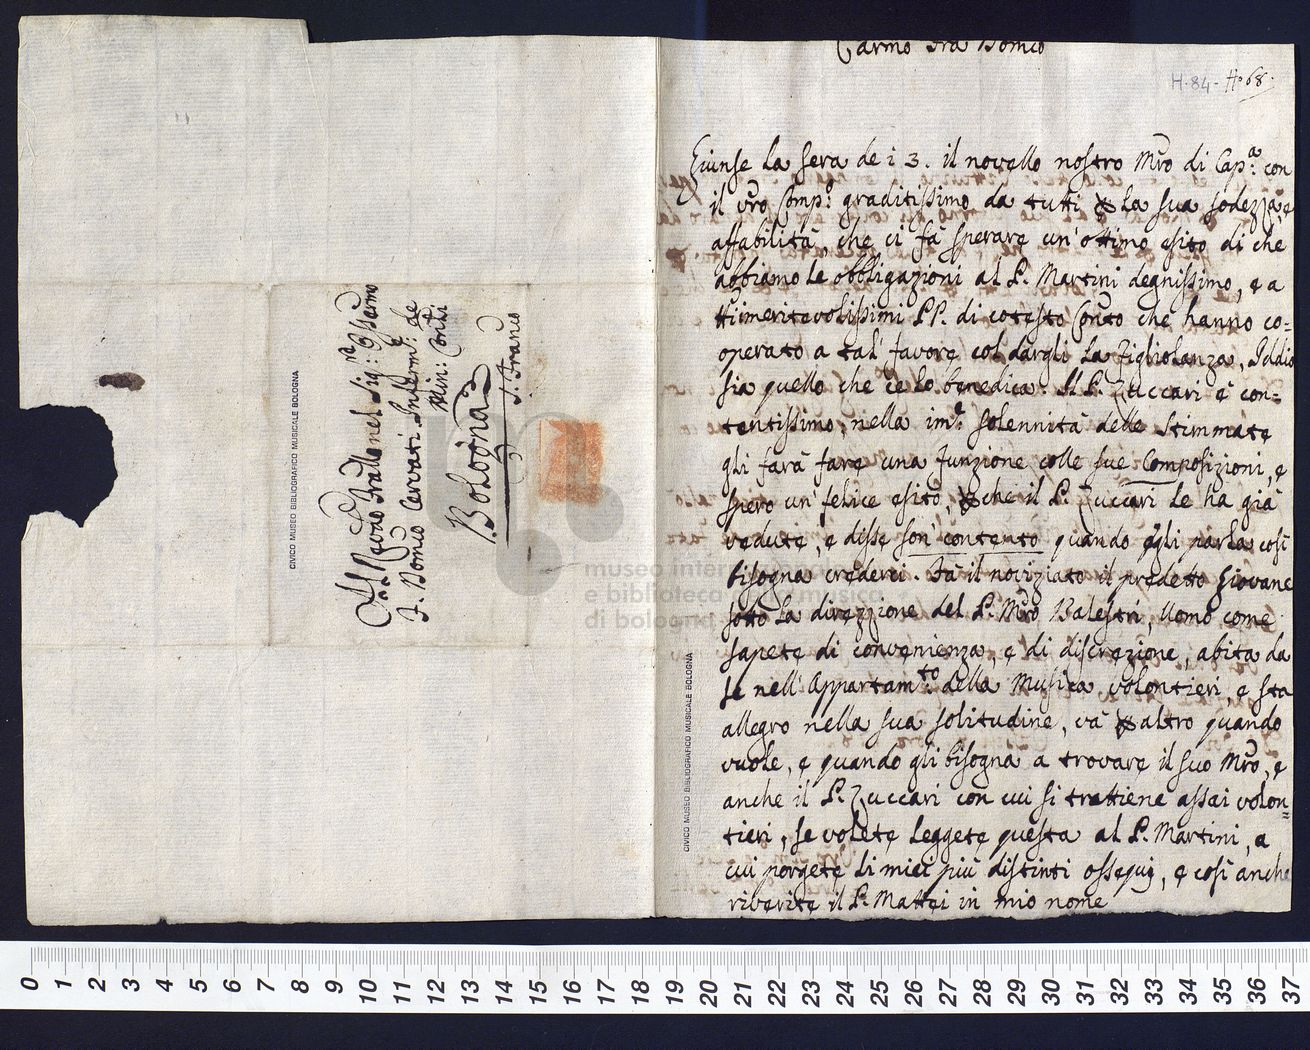 Carmo Fra Domco
H·84- H·68·
Giunse la sera de i 3. il novello nostro Mro di Capa: con
il vro Compo: graditissimo da tutti per la sua sodezza, e
affabilità, che ci fà sperare un'ottimo esito di che
abbiamo le obbligazioni al P. Martini degnissimo, e a
meritevolissimi PP. di cotesto Convto che hanno co=
operato a tal' favore col' dargli la Figliolanza, Iddio
sia quello che ce lo benedica. Il P. Zuccari è con=
tentissimo, nella solennità delle Stimmate
gli farà fare una funzione colle sue Composizioni, e
spero un' felice esito, perche il P. Zuccari le ha già
vedute, e disse son' contento quando egli parla così
bisogna crederci. Fà il noviziato il predetto Giovane
sotto la direzzione del P. Mro Balestri, Uomo come
sapete di convenienza, e di discrezione, abita da
se nell' Appartamto: della Musica volontieri, e sta
allegro nella sua solitudine, và per altro quando
vuole, e quando gli bisogna a trovare il suo Mro, e
anche il P. Zuccari con cui si trattiene assai volon=
tieri, se volete leggete questa al P. Martini, a
cui porgete li miei più distinti ossequj, e così anche
riverite il P. Mattei in mio nome
Al Revdo Fratello nel Sigre: Ossermo
F. Domco Cervati Infermre: de
Min: Conti
Bologna
S. Franco
CIVICO MUSEO BIBLIOGRAFICO MUSICALE BOLOGNA
CIVICO MUSEO BIBLIOGRAFICO MUSICALE BOLOGNA
museo internazionale
e biblioteca della musica
di bologna
0 1 2 3 4 5 6 7 8 9 10 11 12 13 14 15 16 17 18 19 20 21 22 23 24 25 26 27 28 29 30 31 32 33 34 35 36 37